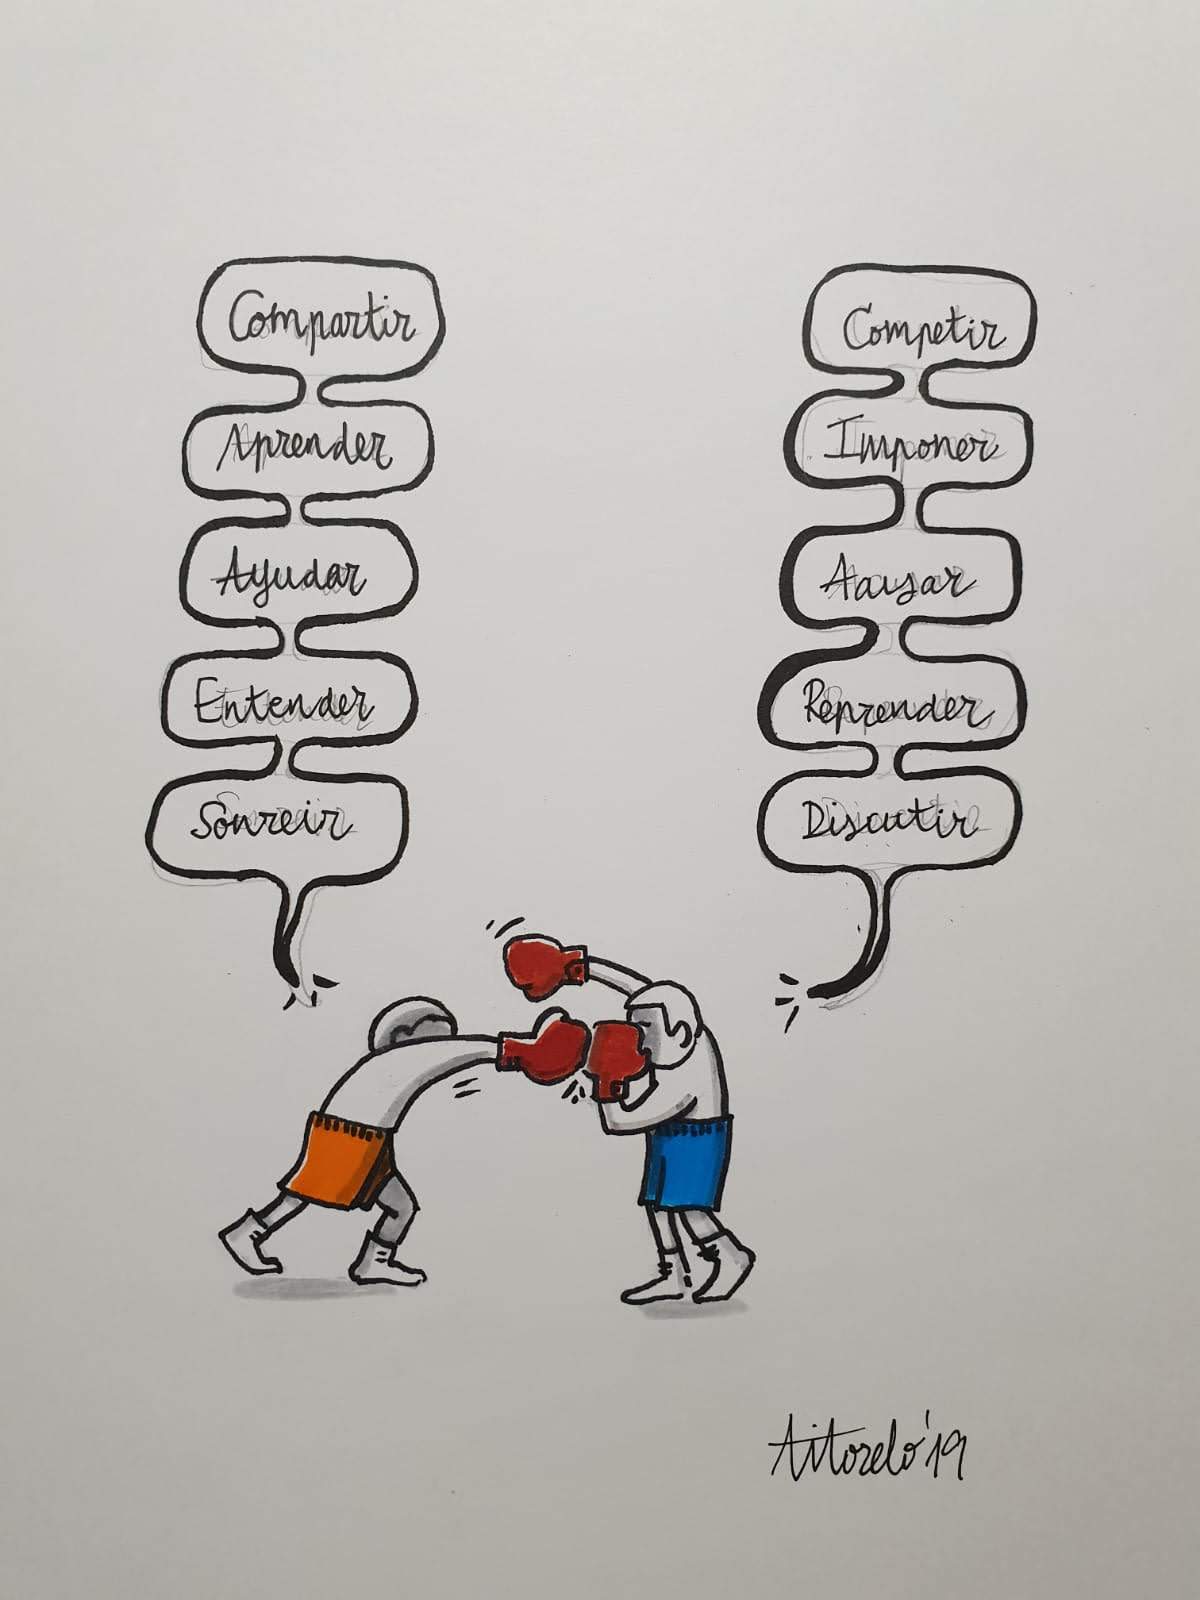 Compartir
Aprender
Ayudar
Entender
Sonreir
Competir
Imponer
Acusar
Reprender
Discutir
Aitorelo'19